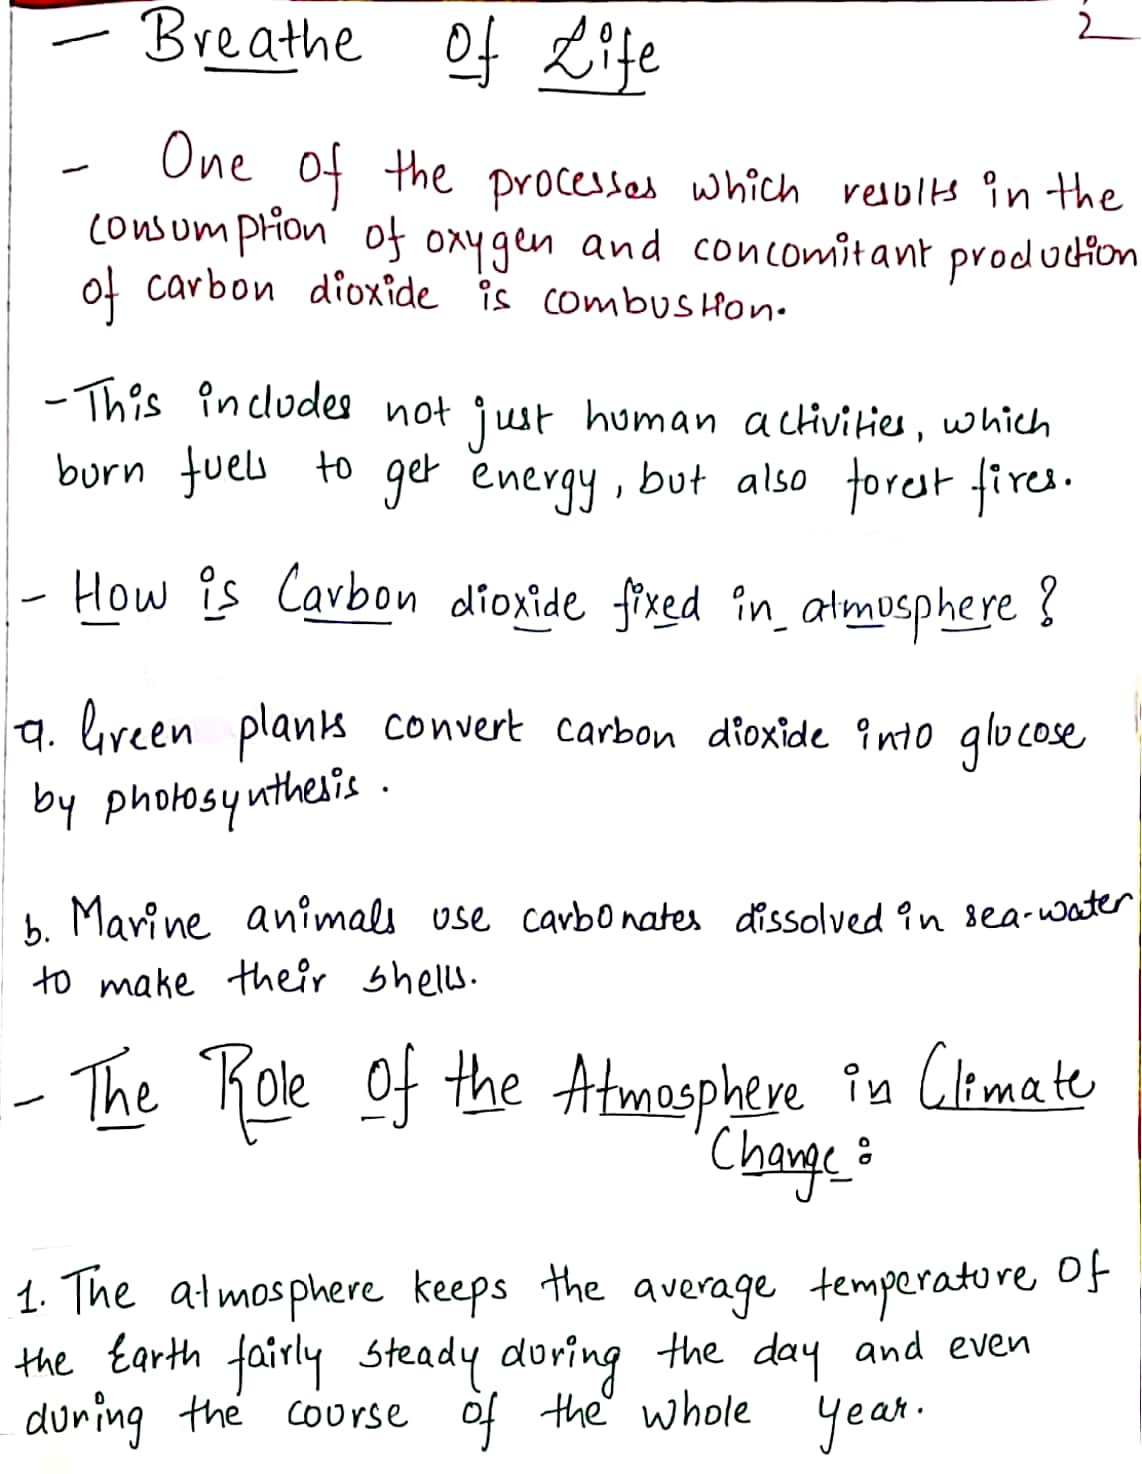 2
- Breathe Of Life
- One of the processes which results in the
consumption of oxygen and concomitant production
of carbon dioxide is combustion.
- This includes not just human activities, which
burn fuels to get energy, but also forest fires.
- How is Carbon dioxide fixed in atmosphere ?
a. Green plants convert carbon dioxide into glucose
by photosynthesis.
b. Marine animals use carbonates dissolved in sea-water
to make their shells.
- The Role Of the Atmosphere in Climate
Change:
1. The atmosphere keeps the average temperature of
the Earth fairly steady during the day and even
during the course of the whole year.